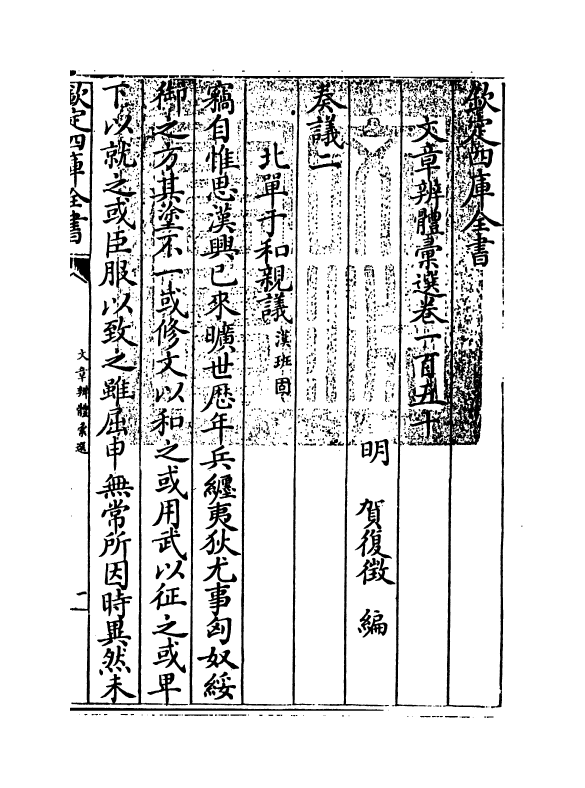 欽定四庫全書
文章辨體彚選卷一百五十
明 賀復徵 編
奏議二
北單于和親議 漢班固
竊自惟思漢興已來曠世歴年兵纏夷狄尤事匈奴綏
御之方其塗不一或修文以和之或用武以征之或卑
下以就之或臣服以致之雖屈申無常所因時異然未
欽定四庫全書
文章辨體彚選